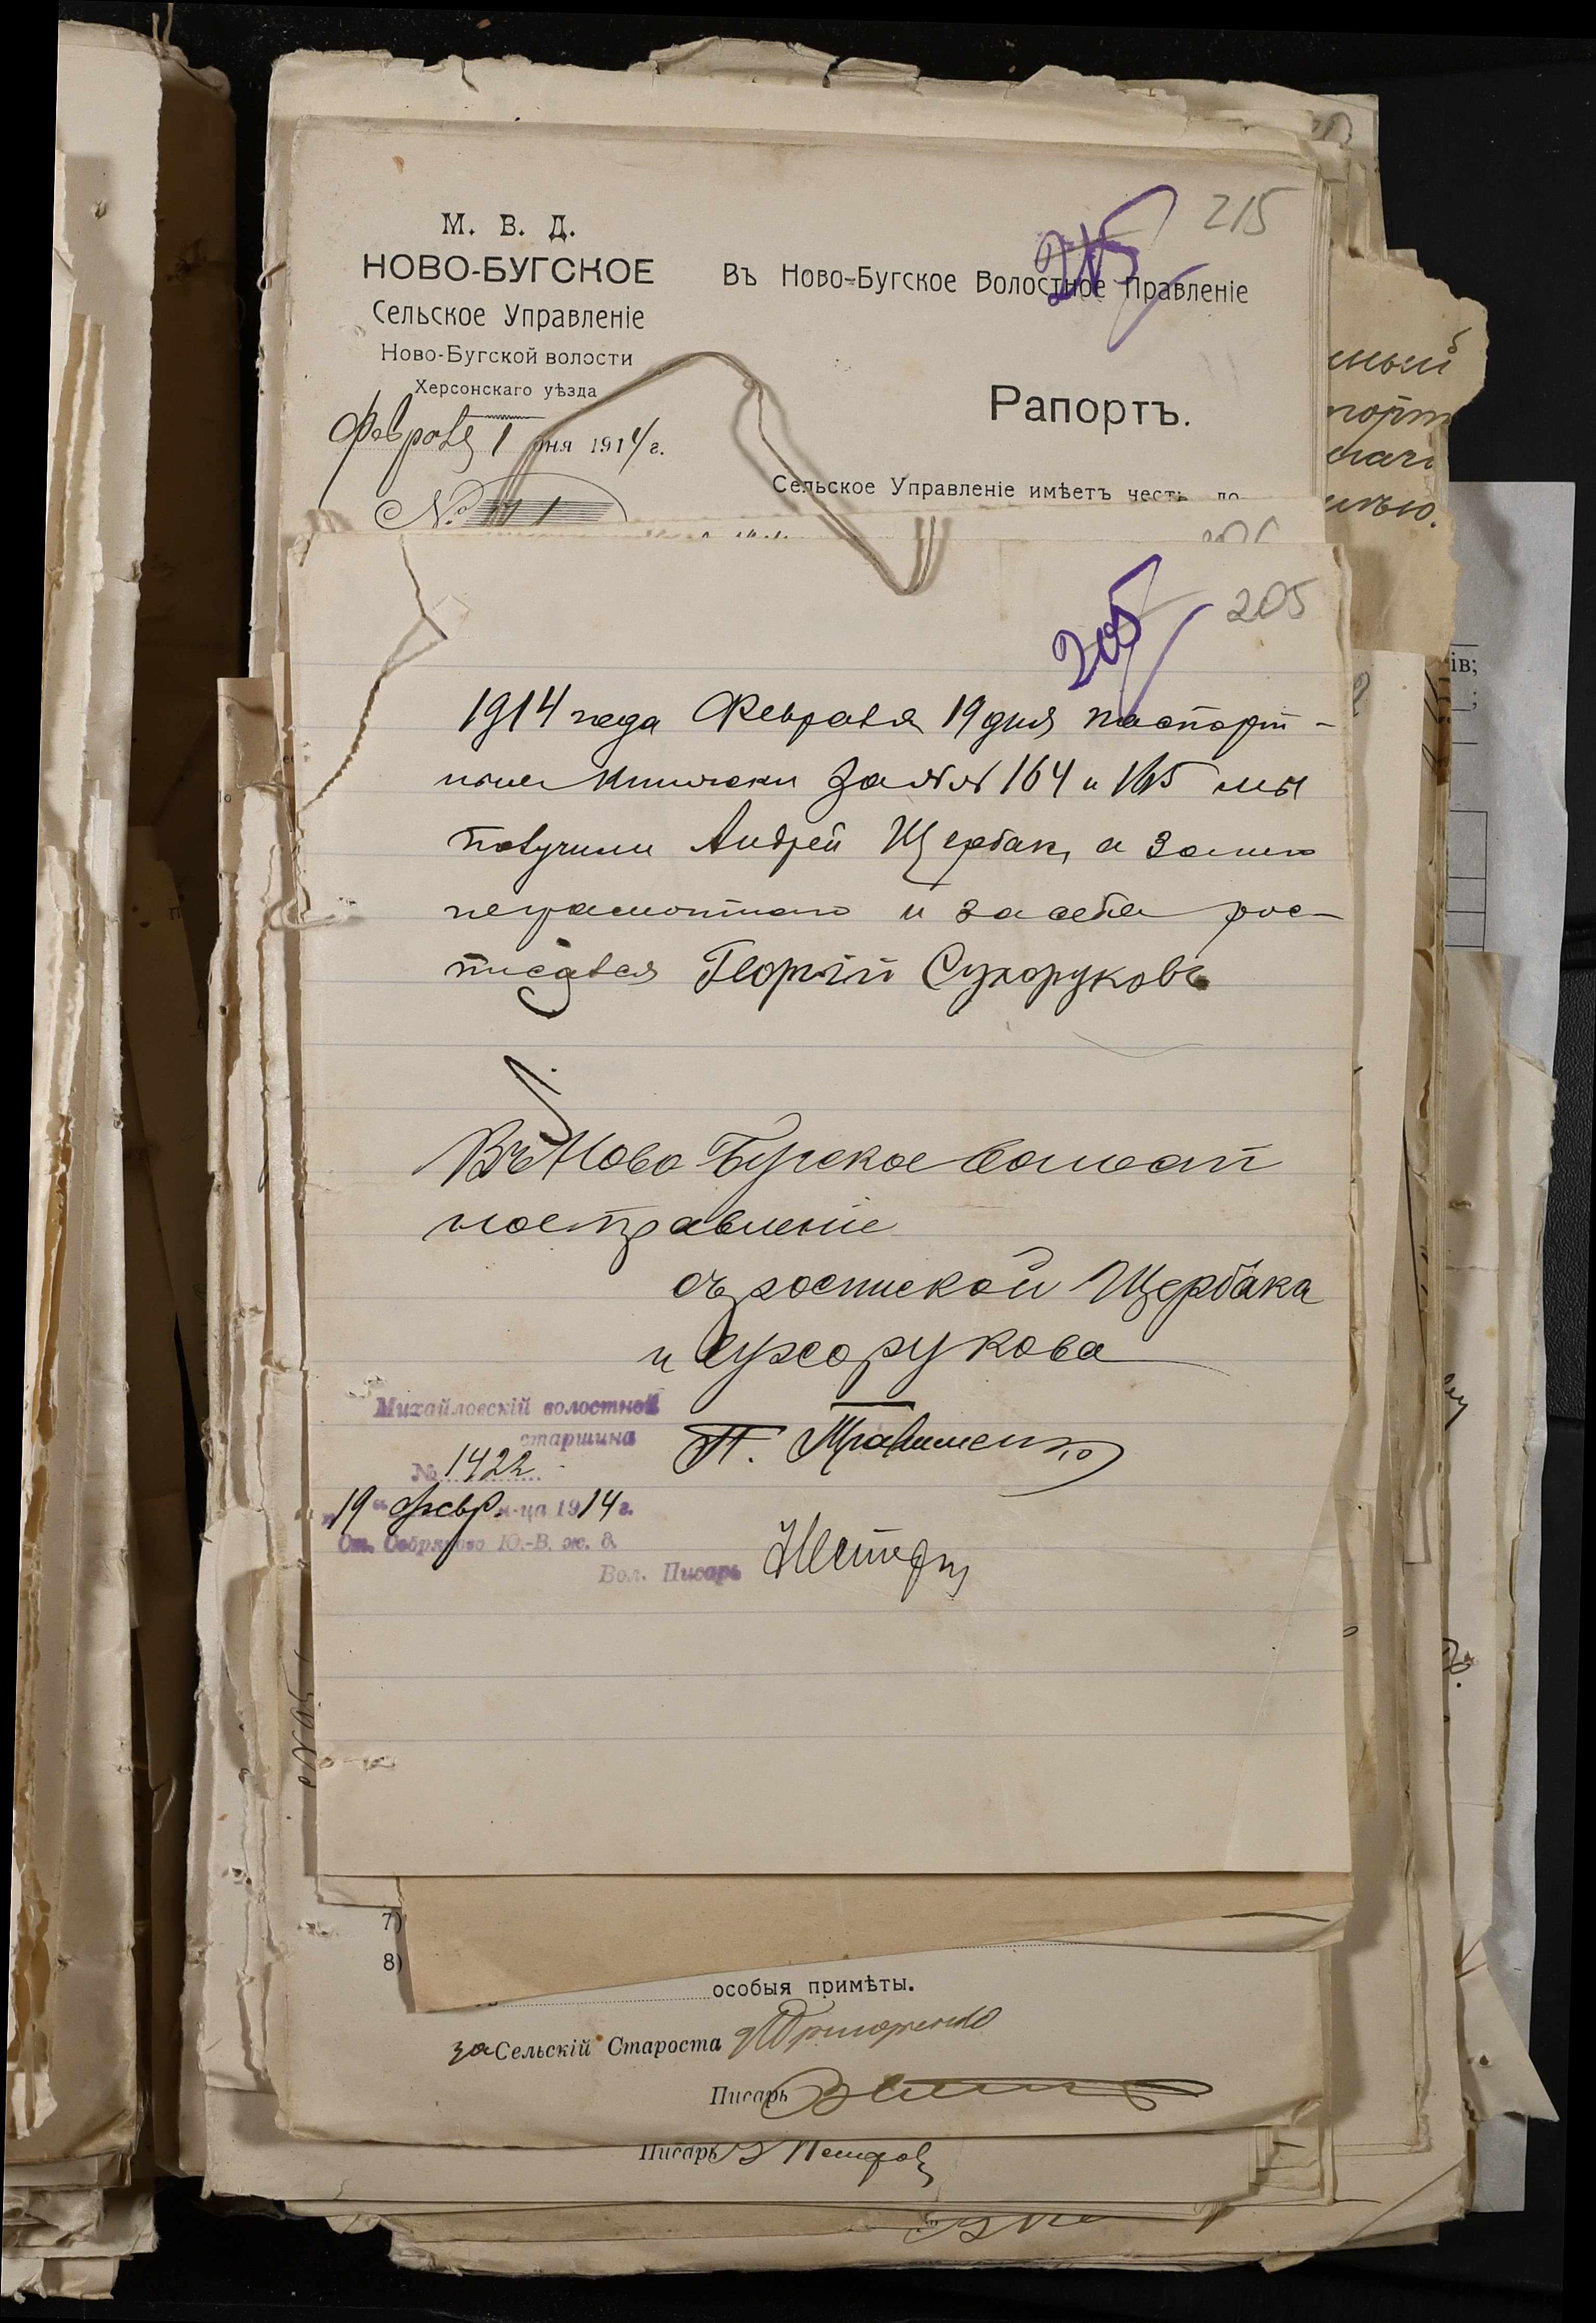 215
215
М. В. Д.
НОВО-БУГСКОЕ
Сельское Управленіе
Ново-Бугской волости
Херсонскаго уѣзда
Февраля 1 дня 1914 г.
№
Въ Ново-Бугское Волостное Правленіе
Рапортъ.
Сельское Управленіе имѣетъ честь до-
205
205
1914 года Февраля 19 дня паспорт-
ныя книжки за №№ 164 и 165 мы
получили Андрей Щербак, а за него
неграмотнаго и за себя рос-
писался Георгій Сухоруковъ
Въ Ново Бугское Волост
ное правленіе
съ роспиской Щербака
и Сухорукова
Михайловскій волостной
старшина
№ 1422
"19" февр. м-ца 1914 г.
Ст. Себряково Ю.-В. ж. д.
Вол. Писарь
7)
8)
особыя примѣты.
за Сельскій Староста
Писарь
Писарь